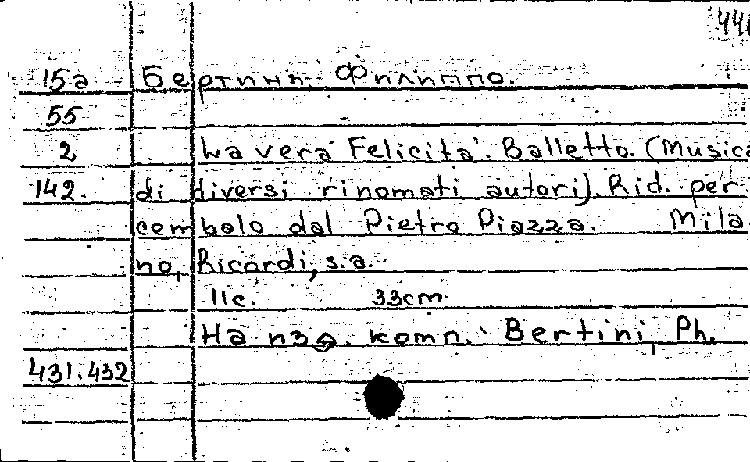 15а Бертини Филиппо.
55
2 La vera Felicita. Balletto. (Musica
142. di diversi rinomati autori). Rid. per
cembalo dal Pietro Piazza. Mila
no, Ricordi, s.a.
11c. 33cm.
На изд. комп.: Bertini, Ph.
431.432